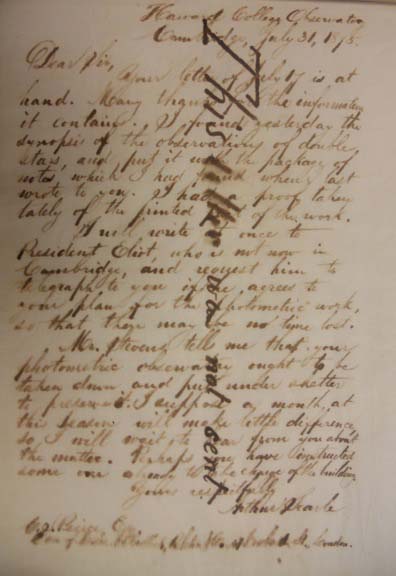 Harvard College Observatory
Cambridge, July 31, 1875.
Dear Sir,
Your letter of July 17 is at
hand. Many thanks for the information
it contains. I found yesterday the
synopsis of the observations of double
stars, and put it with the package of
notes which I had found when I last
wrote to you. I had proof taken
lately of the printed of the work.
I will write at once to
President Eliot, who is not now in
Cambridge, and request him to
telegraph to you if he agrees to
your plan for the photometric work,
so that there may be no time lost.
Mr. Stevens tells me that your
photometric observatory ought to be
taken down and put under shelter
to preserve it. I suppose a month, at
this season will make little difference
so I will wait to hear from you about
the matter. Perhaps you have instructed
some one already to take charge of the building
Yours respectfully
Arthur Searle
C. S. Peirce Esq
London.
This letter was not sent